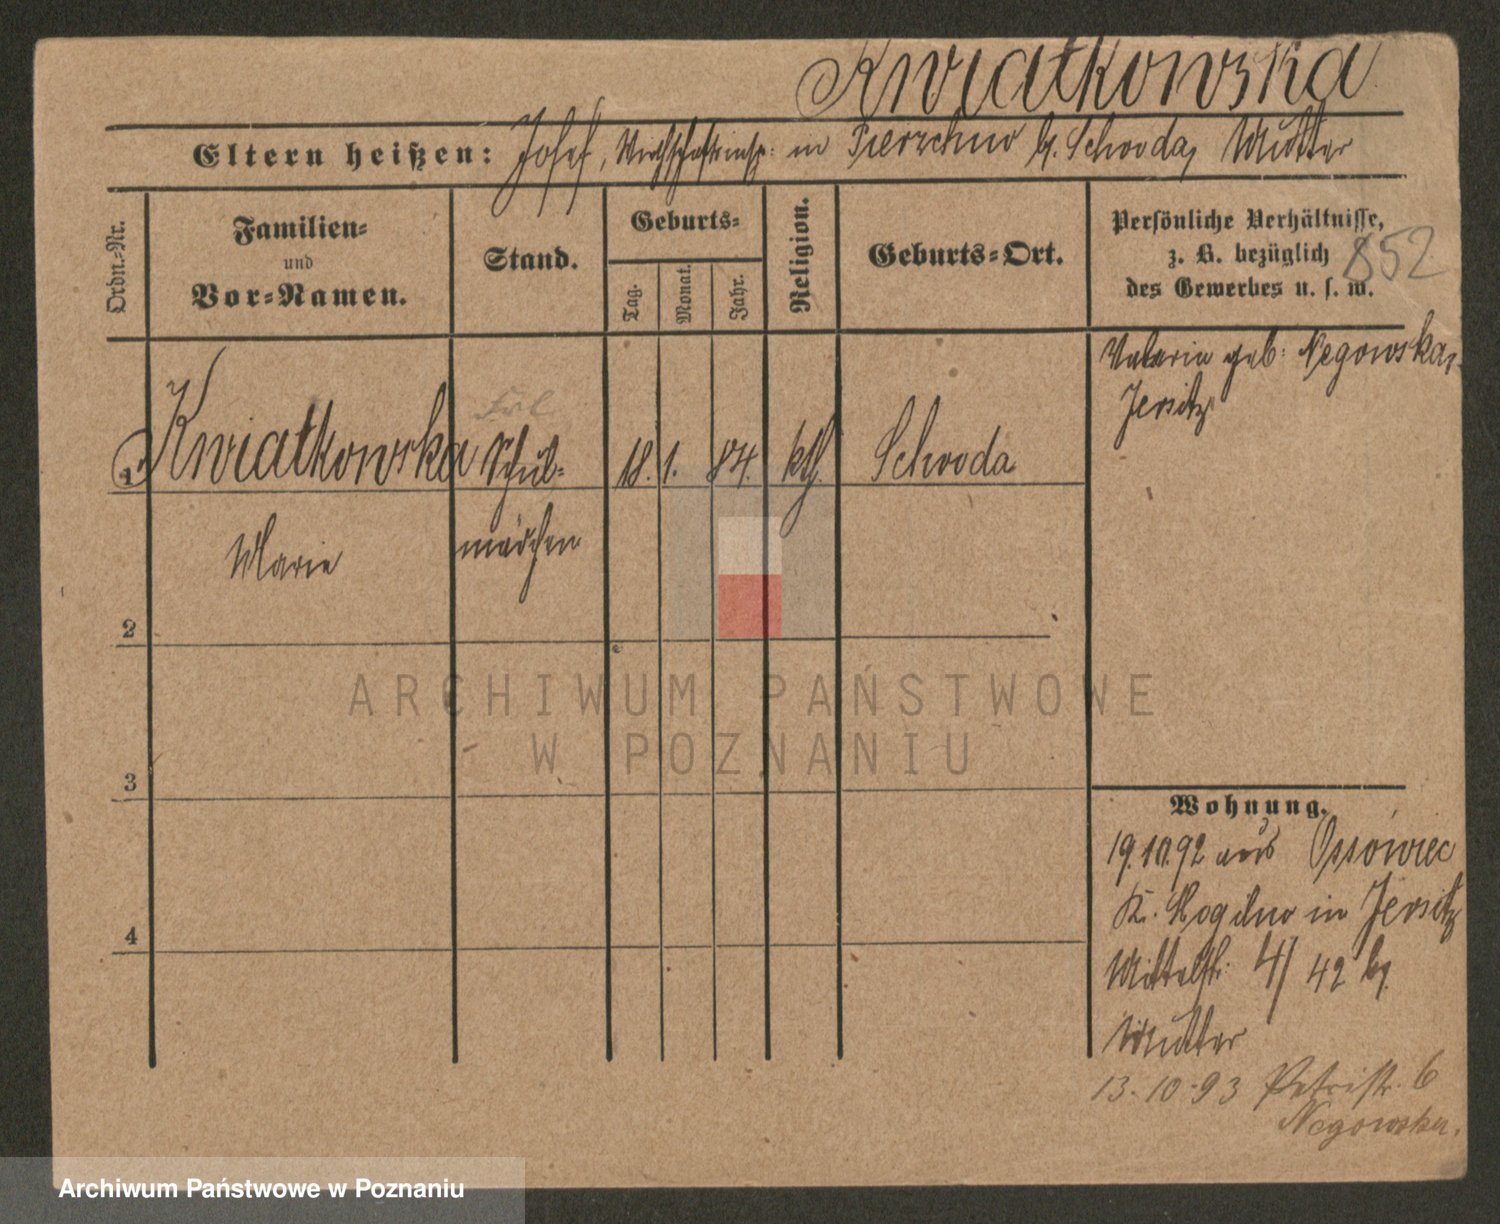 Kwiatkowska
Eltern heißen: Josef, Wirthschaftsinsp: in Pierzchno b. Schroda, Mutter
Ordn.-Nr.
Familien-
und
Vor-Namen.
Stand.
Geburts-
Tag.
Monat.
Jahr.
Religion.
Geburts-Ort.
Persönliche Verhältnisse,
z. B. bezüglich
des Gewerbes u. s. w.
852
Valerie geb: Negowska,
Jersitz
Frl
1 Kwiatkowska Schul- 18. 1. 84. kth. Schroda
Marie mädchen
2
3
4
Wohnung.
19.10.92 aus Ossowiec
K. Mogilno in Jersitz
Mittelstr: 4/42 b.
Mutter
13.10.93 Petristr. 6
Negowska.
ARCHIWUM PAŃSTWOWE
W POZNANIU
Archiwum Państwowe w Poznaniu